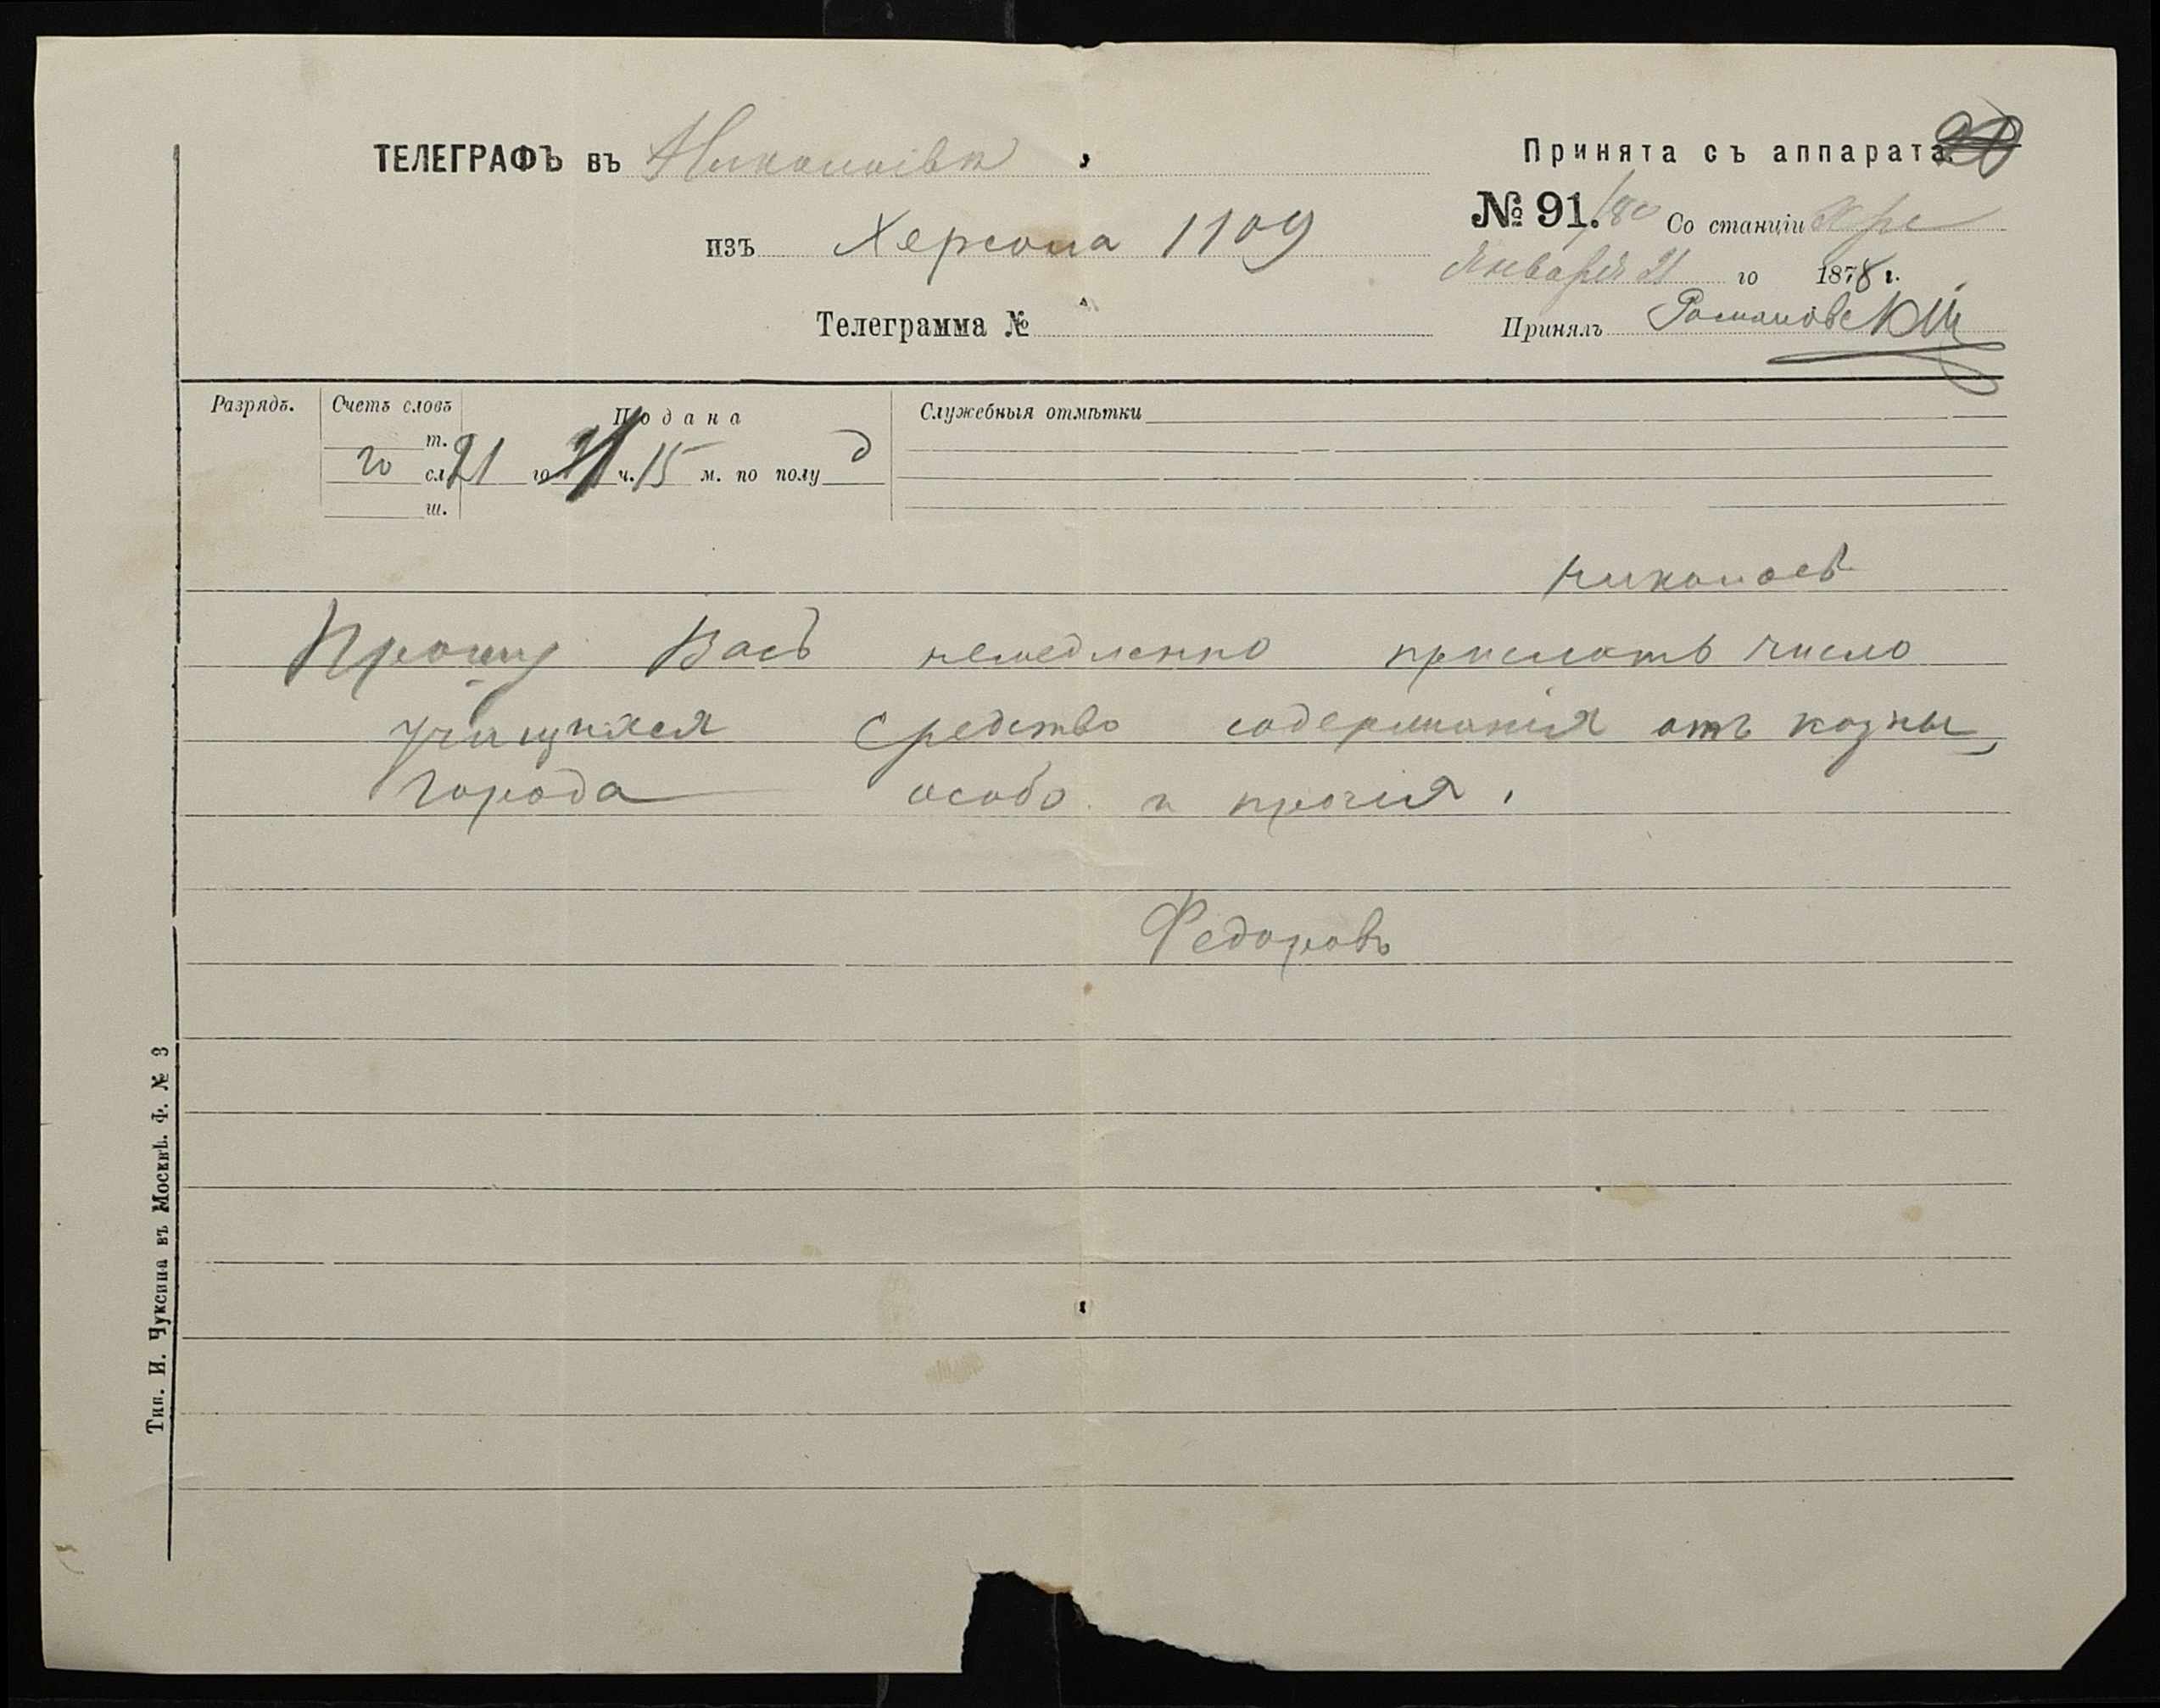 ТЕЛЕГРАФЪ въ Николаевъ
изъ Херсона 1109
Телеграмма №
Принята съ аппарата
№ 91./80 Со станціи Хрс
Января 21 го 1878 г.
Принялъ Романовскій
Разрядъ.
Счетъ словъ
т.
20 сл.
ш.
Подана
21 го ч. 15 м. по полу д
Служебныя отмѣтки
Николаевъ
Прошу Васъ немедленно прислать число
учащихся средство содержанія отъ казны,
города особо и прочія.
Федоровъ
Тип. И. Чуксина въ Москвѣ. Ф. № 3